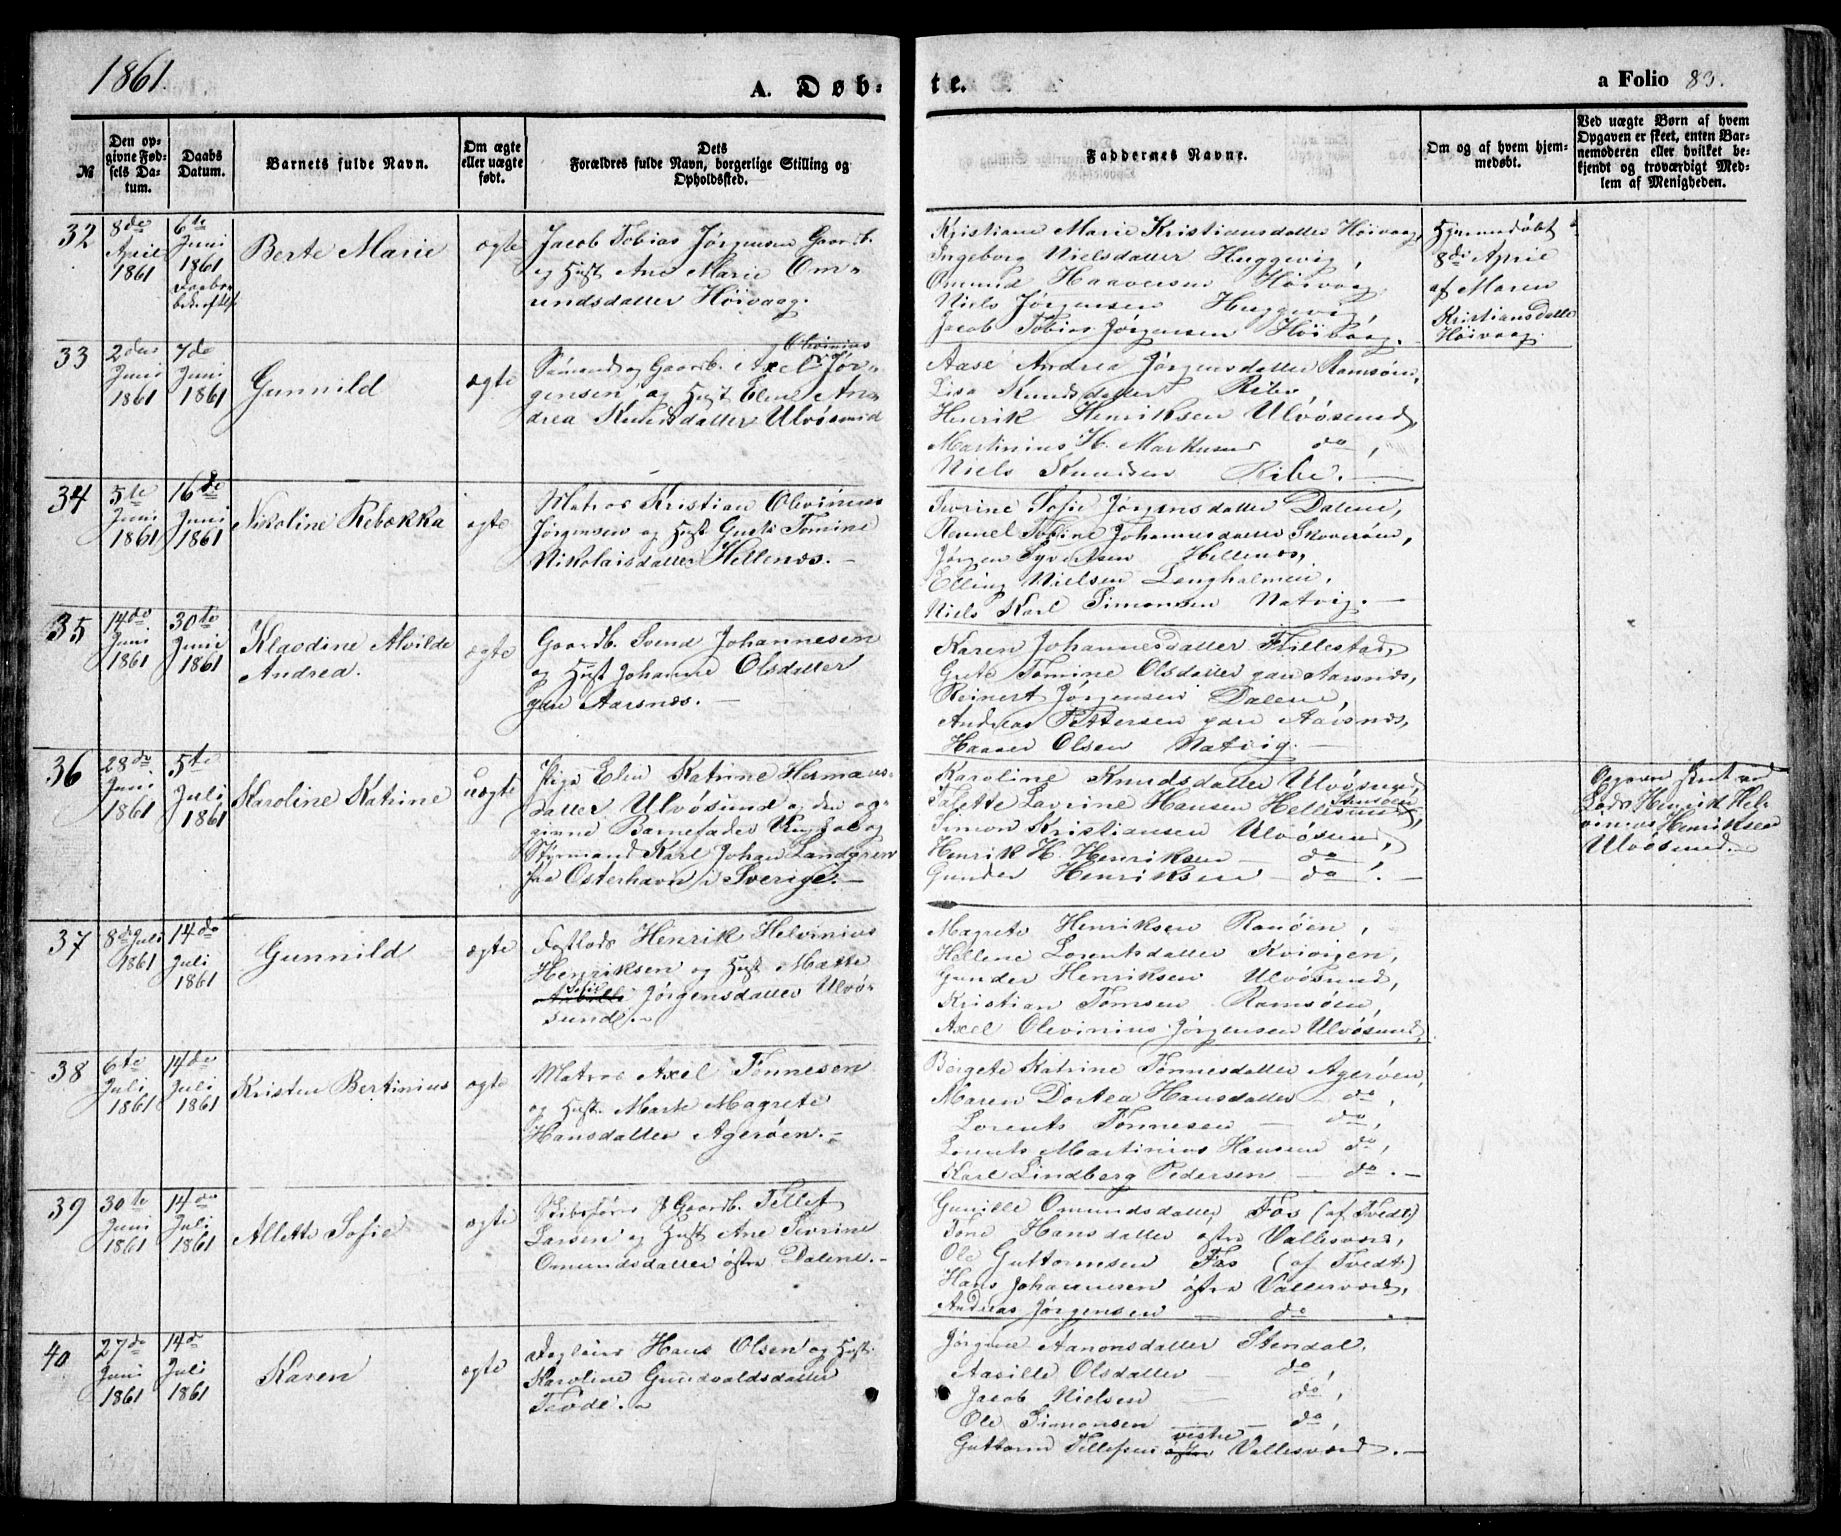 1861.
A. Døb-
te.
a Folio 83.
№
Den op-
givne Fød-
sels Da-
tum.
Daabs
Datum.
Barnets fulde Navn.
Om ægte
eller uægte
født.
Dets
Forældres fulde Navn, borgerlige Stilling og
Opholdssted.
Faddernes Navne.
Om og af hvem hjem-
medøbt.
Ved uægte Børn af hvem
Opgaven er skeet, enten Bar-
nemoderen eller hvilket be-
kjendt og troværdigt Med-
lem af Menigheden.
32
8de
April
1861
6te
Juni
1861
Daabs
bekræftet
Berte Marie
ægte
Jacob Tobias Jørgensen Gaardb.
og Hust. Ane Marie Om-
undsdatter Höivaag.
Kristiane Marie Kristiansdatter Höivaag,
Ingeborg Nielsdatter Huggevig,
Omund Haaversen Höivaag
Niels Jørgensen Huggevig,
Jacob Tobias Jørgensen Höivaag.
Hjemmedøbt
8de April
af Maren
Kristiansdatter
Höivaag.
33
2den
Juni
1861
7de
Juni
1861
Gunnild
ægte
Olevinius
Sömand og Gaardb. Axel Jør-
gensen og Hust Elene An-
drea Knudsdatter Ulvösund
Aase Andrea Jörgensdatter Ramsöen,
Lisa Knudsdatter Ribe,
Henrik Henriksen Ulvösund,
Martinius H. Markusen do,
Niels Knudsen Ribe.
34
5te
Juni
1861
16de
Juni
1861
Nikoline Rebekka
ægte
Matros Kristian Olevinus
Jørgensen og Hust Gusta Tomine
Nikolaisdatter Hellenæs.
Severine Sofie Jörgensdatter Dalene,
Tobine Johannesdatter Skoveröen,
Jørgen Syvertsen Hellenæs,
Elling Nielsen Langholmen,
Niels Karl Simonsen Natvig.
35
14de
Juni
1861
30te
Junie
1861
Klaodine Alvilde
Andrea.
ægte
Gaardb. Svend Johannesen
og Hust Johanne Olsdatter
gau Aarsnæs.
Karen Johannesdatter Fillestad,
Grete Tomine Olsdatter gau Aarsnæs,
Reinert Jørgensen Dalene,
Andreas Pettersen gau Aarsnæs,
Haaver Olsen Natvig.
36
28de
Juni
1861
5te
Juli
1861
Karoline Katrine
uægte
Pige Elen Katrine Hermans-
datter Ulvösund og den op-
givne Barnefader Ungkal og
Styrmand Karl Johan Landgren
fra Osterhavn i Sverige.
Karoline Knudsdatter Ulvösund,
Talette Lavrine Hansen Hellesund,
Simon Kristiansen Ulvösund,
Henrik H. Henriksen do,
Gunder Henriksen do.
Lods Henrik Hel-
vinius Henriksen
Ulvösund.
37
8de Juli
1861
14de
Juli
1861
Gunnild
ægte
Fastlods Henrik Helvinius
Henriksen og Hust Mætte
Sofie
Jörgensdatter Ulvö-
sund.
Magrete Henriksen Ramöen,
Hellene Lorentsdatter Kvivigen,
Gunder Henriksen Ulvösund,
Kristian Tomsen Ramsöen,
Axel Olevinius Jörgensen Ulvösund,
38
6te
Juli
1861
14de
Juli
1861
Kristen Bertinius
ægte
Matros Axel Tønnesen
og Hust. Marte Magrete
Hansdatter Ageröen.
Bergete Katrine Tönnesdatter Ageröen,
Maren Dortea Hansdatter do,
Lorents Tønnesen do,
Lorents Martinius Hansen do,
Karl Lindberg Pedersen do.
39
30te
Juni
1861
14de
Juli
1861
Allette Sofie
ægte
Skibsförer & Gaardb. Tellef
Larsen og Hust Ane Severine
Omundsdatter östre Dalene.
Gunille Omundsdatter Fos (af Tvedt)
Tone Hansdatter östre Vallesværd,
Ole Guttormsen Fos (af Tvedt)
Hans Johannesen östre Vallesværd,
Andreas Jørgensen do.
40
27de
Juni
1861
14de
Juli
1861
Karen
ægte
Dagleier Hans Olsen og Hust.
Karoline Gundvaldsdatter
Tvede.
Jørgine Aanonsdatter Stendal,
Aasille Olsdatter do,
Jacob Nielsen do,
Ole Simonsen do,
vestre
Guttorm Tellefsen östre Vallesværd.